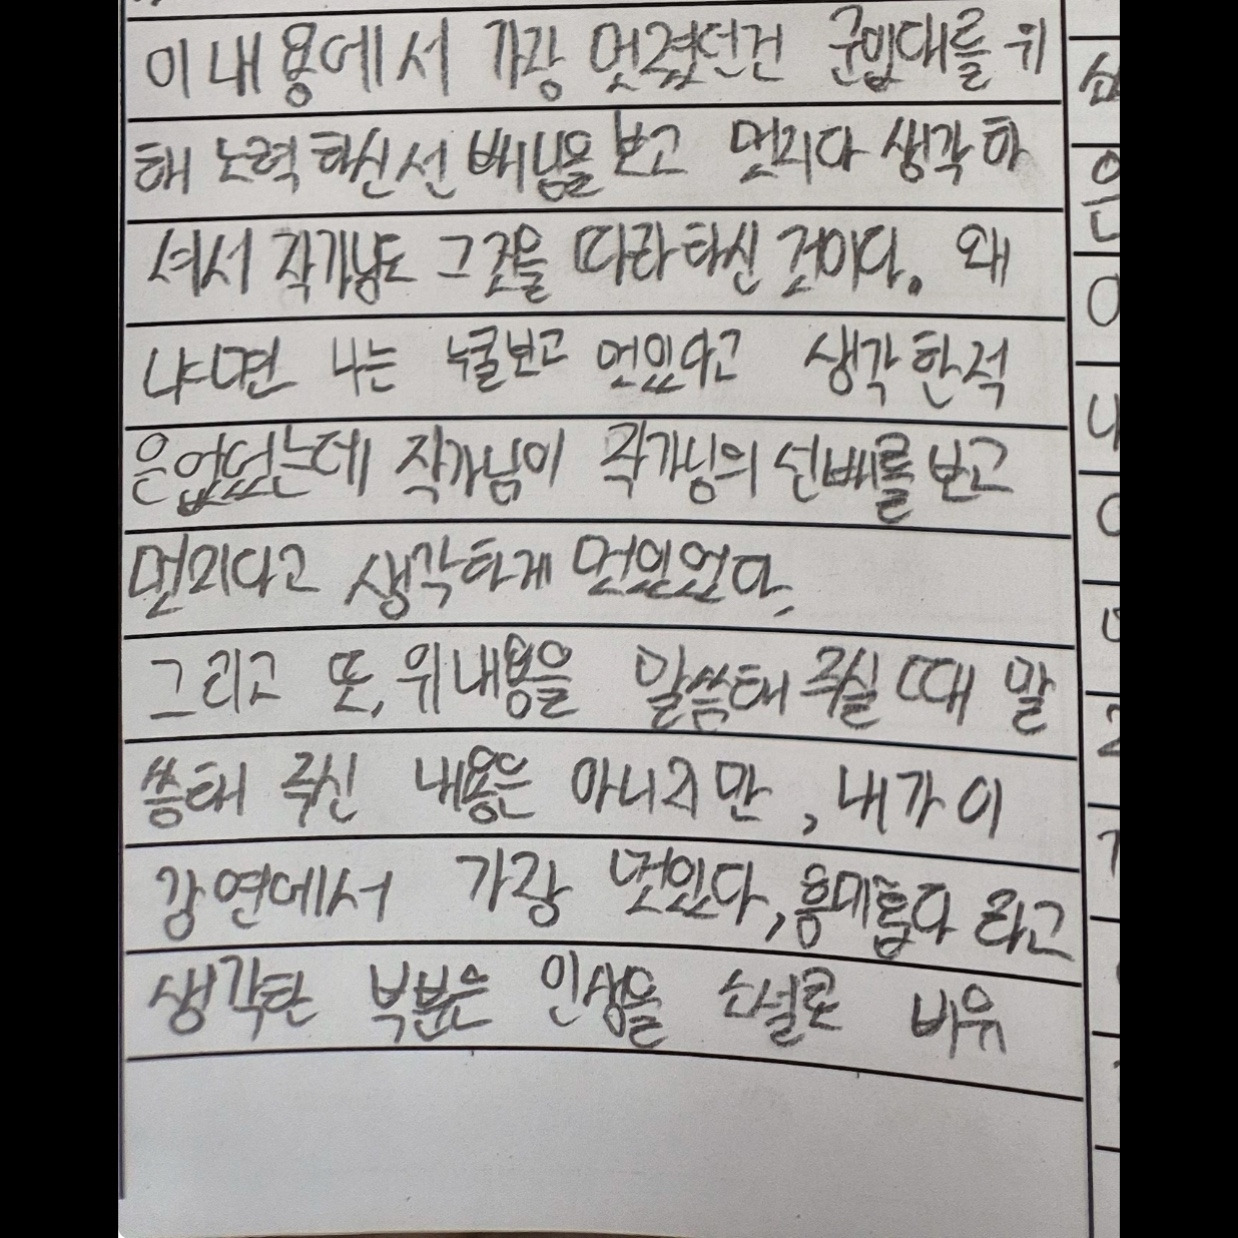 이 내용에서 가장 멋졌던건 군입대를 위
해 노력하신 선배님을 보고 멋지다 생각하
셔서 작가님도 그것을 따라하신 것이다. 왜
냐면 나는 누굴보고 멋있다고 생각한적
은 없었는데 작가님이 작가님의 선배를 보고
멋지다고 생각한게 멋있었다.
그리고 또, 위 내용을 말씀해 주실 때 말
씀해 주신 내용은 아니지만, 내가 이
강연에서 가장 멋있다, 흥미롭다 라고
생각한 부분은 인생을 소설로 비유